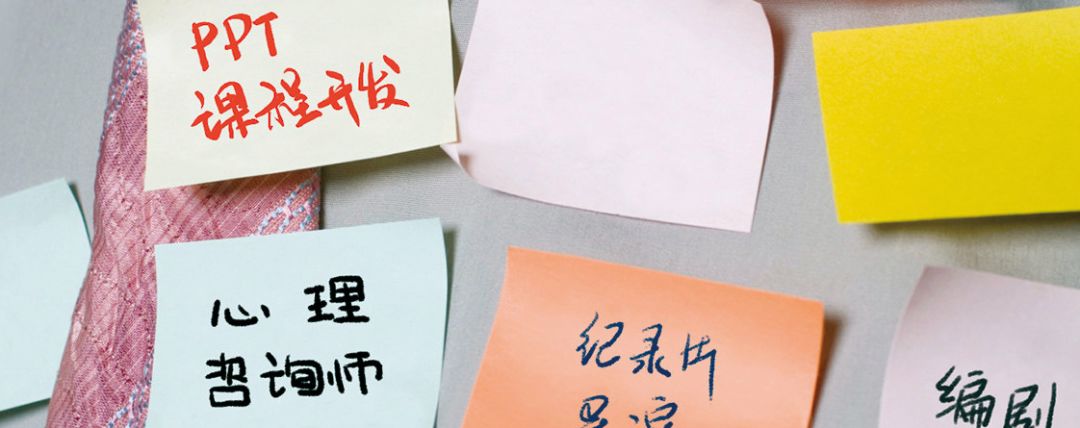 PPT
课程开发
心理
咨询师
纪录片
编剧